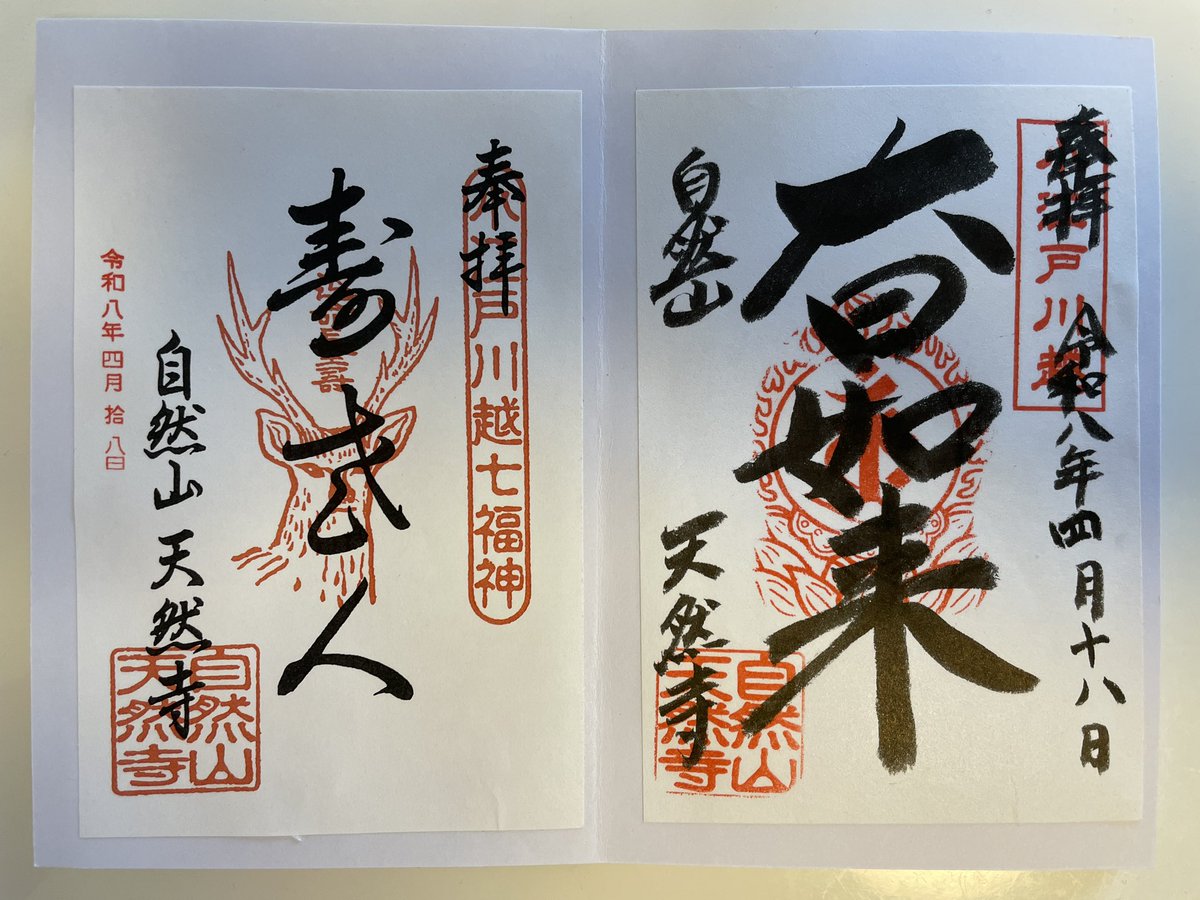 奉拝
令和八年四月十八日
小江戸川越
大日如来
自然山
天然寺
自然山
天然寺
奉拝
小江戸川越七福神
寿老人
自然山 天然寺
自然山
天然寺
令和八年四月拾八日